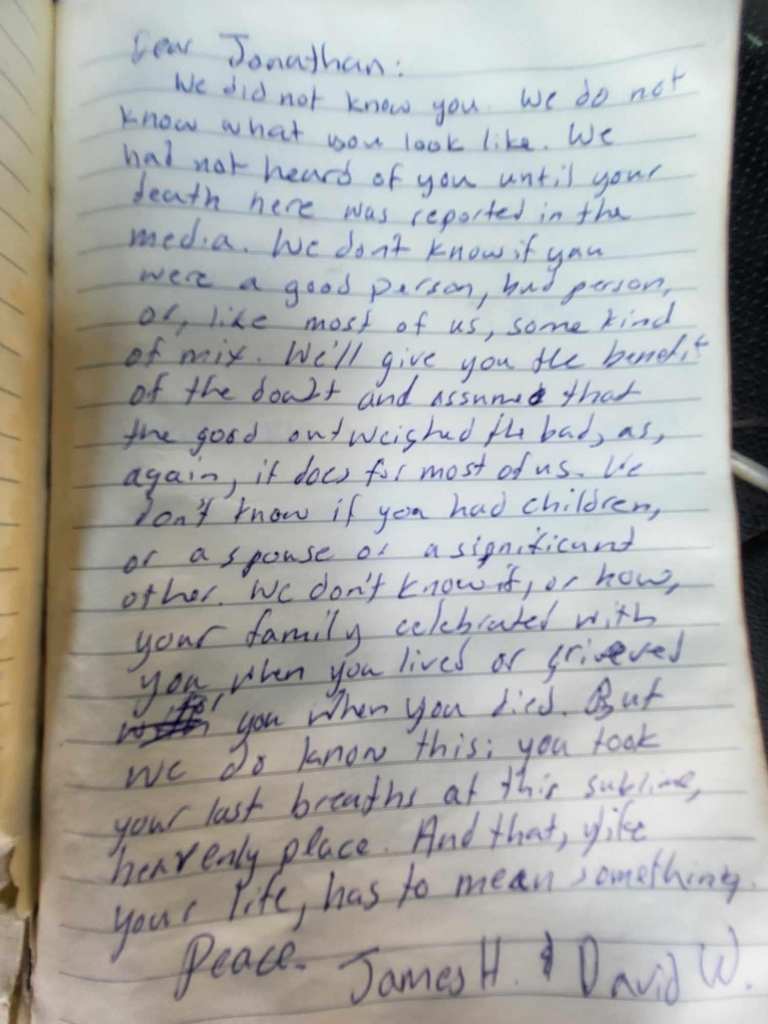 Dear Jonathan:
We did not know you. We do not
know what you look like. We
had not heard of you until your
death here was reported in the
media. We don't know if you
were a good person, bad person,
or, like most of us, some kind
of mix. We'll give you the benefit
of the doubt and assume that
the good outweighed the bad, as,
again, it does for most of us. We
don't know if you had children,
or a spouse or a significant
other. We don't know if, or how,
your family celebrated with
you when you lived or grieved
for you when you died. But
we do know this: you took
your last breaths at this sublime,
heavenly place. And that, like
your life, has to mean something.
Peace. James H. & David W.